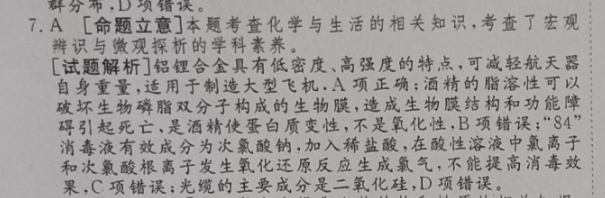 群分布,D项错误。
7. A [命题立意]本题考查化学与生活的相关知识,考查了宏观
辨识与微观探析的学科素养。
[试题解析]铝锂合金具有低密度、高强度的特点,可减轻航天器
自身重量,适用于制造大型飞机,A项正确;酒精的脂溶性可以
破坏生物磷脂双分子构成的生物膜,造成生物膜结构和功能障
碍引起死亡,是酒精使蛋白质变性,不是氧化性,B项错误;“84”
消毒液有效成分为次氯酸钠,加入稀盐酸,在酸性溶液中氯离子
和次氯酸根离子发生氧化还原反应生成氯气,不能提高消毒效
果,C项错误;光缆的主要成分是二氧化硅,D项错误。